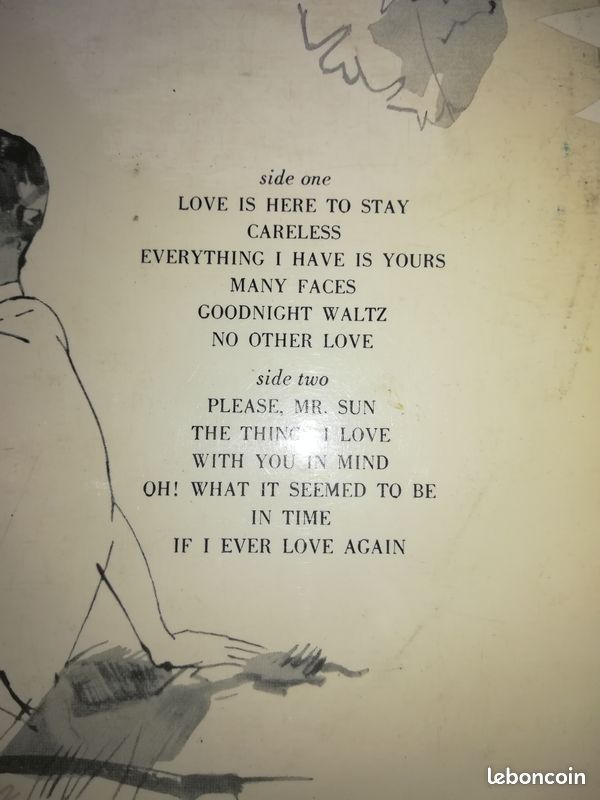 side one
LOVE IS HERE TO STAY
CARELESS
EVERYTHING I HAVE IS YOURS
MANY FACES
GOODNIGHT WALTZ
NO OTHER LOVE
side two
PLEASE, MR. SUN
THE THINGS I LOVE
WITH YOU IN MIND
OH! WHAT IT SEEMED TO BE
IN TIME
IF I EVER LOVE AGAIN
leboncoin